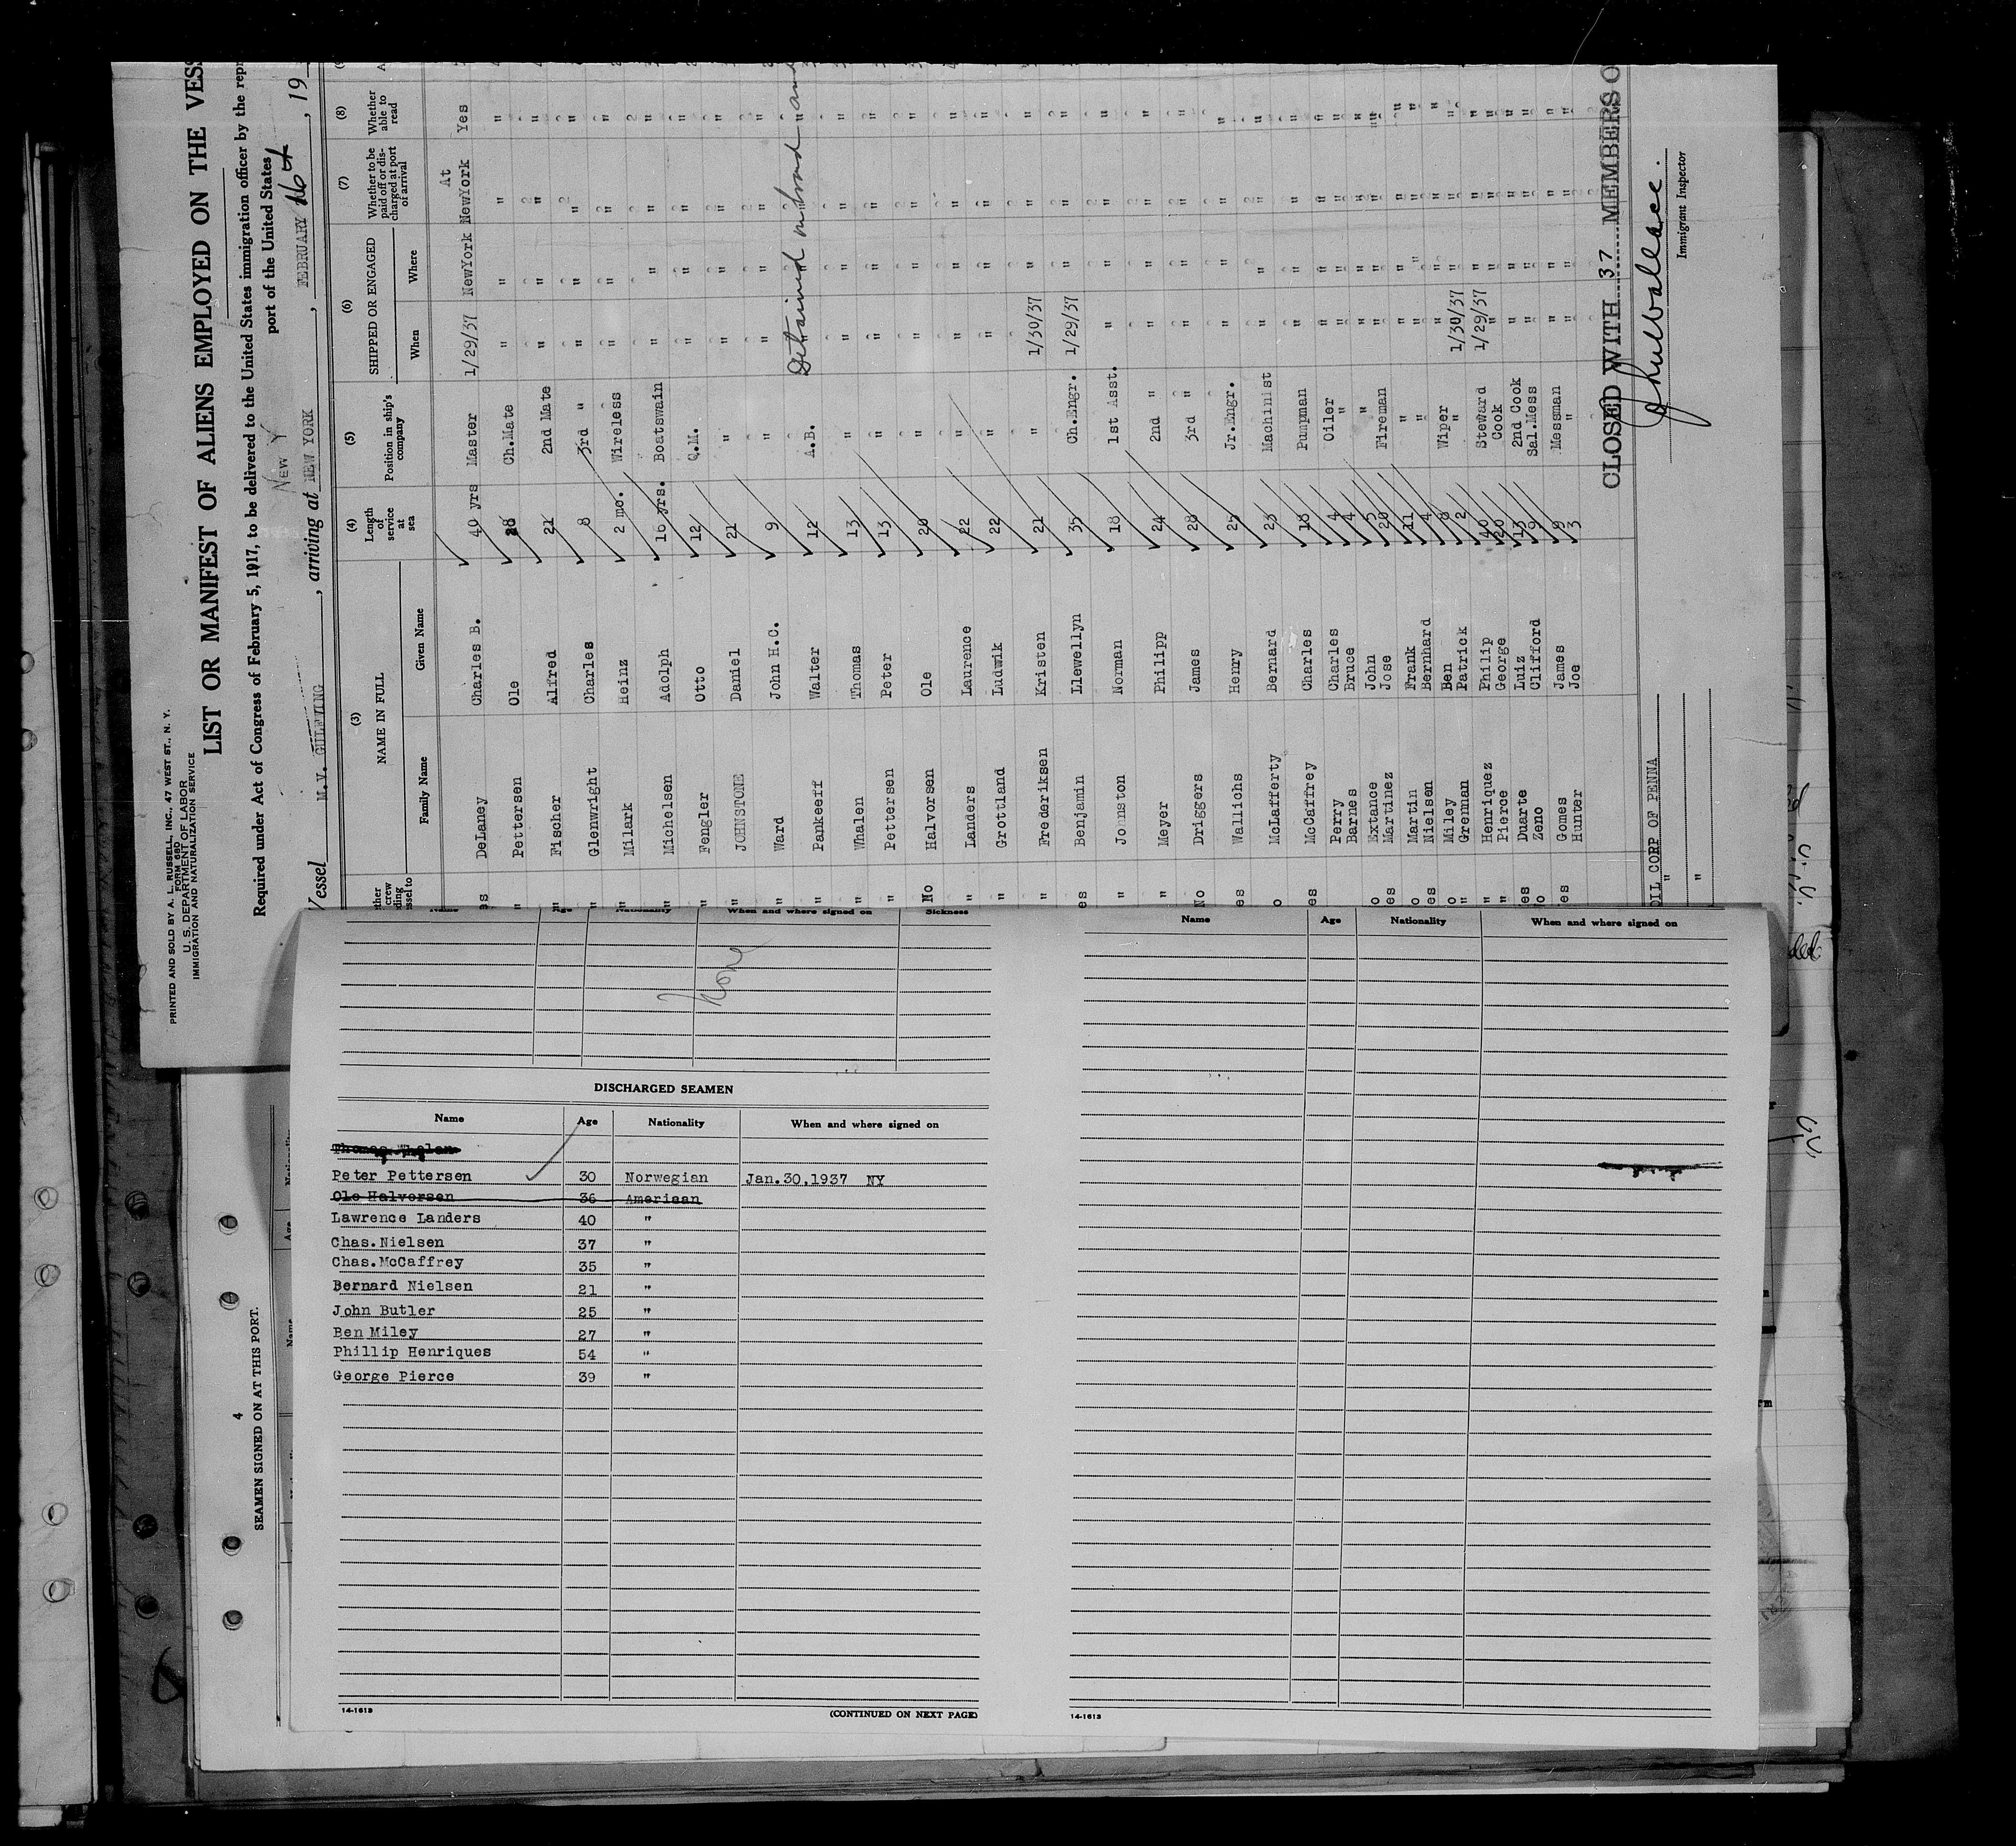 PRINTED AND SOLD BY A. L. RUSSELL, INC., 47 WEST ST., N. Y.
FORM 680
U. S. DEPARTMENT OF LABOR
IMMIGRATION AND NATURALIZATION SERVICE
LIST OR MANIFEST OF ALIENS EMPLOYED ON THE VESS
Required under Act of Congress of February 5, 1917, to be delivered to the United States immigration officer by the repr
port of the United States
New Y
Vessel M.V. GULFWING, arriving at NEW YORK, FEBRUARY 16th, 19
(3) (4) (5) (6) (7) (8)
NAME IN FULL
Family Name Given Name
Length of service at sea
Position in ship's company
SHIPPED OR ENGAGED
When Where
Whether to be paid off or discharged at port of arrival
Whether able to read
DeLaney Charles B. 40 yrs Master 1/29/37 NewYork At NewYork Yes
Pettersen Ole 28 Ch.Mate " " " "
Fischer Alfred 21 2nd Mate " " " "
Glenwright Charles 8 3rd " " " " "
Milark Heinz 2 mo. Wireless " " " "
Michelsen Adolph 16 yrs. Boatswain " " " "
Fengler Otto 12 Q.M. " " " "
JOHNSTONE Daniel 21 " " " " "
Ward John H.C. 9 " " " " "
Pankeeff Walter 12 A.B. Detained on board and
Whalen Thomas 13 " " " " "
Pettersen Peter 13 " " " " "
Halvorsen Ole 20 " " " " "
Landers Laurence 22 " " " " "
Grottland Ludwik 22 " " " " "
Frederiksen Kristen 21 " 1/30/37 " " "
Benjamin Llewellyn 35 Ch.Engr. 1/29/37 " " "
Johnston Norman 18 1st Asst. " " " "
Meyer Philipp 24 2nd " " " " "
Driggers James 28 3rd " " " " "
Wallichs Henry 25 Jr.Engr. " " " "
McLafferty Bernard 23 Machinist " " " "
McCaffrey Charles 18 Pumpman " " " "
Perry Charles 4 Oiler " " " "
Barnes Bruce 4 " " " " "
Extance John 5 " " " " "
Martinez Jose 20 Fireman " " " "
Martin Frank 11 " " " " "
Nielsen Bernhard 4 " " " " "
Miley Ben 8 Wiper " " " "
Grenman Patrick 2 " 1/30/37 " " "
Henriquez Philip 40 Steward 1/29/37 " " "
Pierce George 20 Cook " " " "
Duarte Luiz 13 2nd Cook " " " "
Zeno Clifford 9 Sal.Mess " " " "
Gomes James 9 Messman " " " "
Hunter Joe 3 " " " " "
CLOSED WITH 37 MEMBERS O
OIL CORP OF PENNA
Immigrant Inspector
When and where signed on Sickness
None
DISCHARGED SEAMEN
Name Age Nationality When and where signed on
Thomas Whelan
Peter Pettersen 30 Norwegian Jan.30.1937 NY
Ole Halversen 36 Ameriaan
Lawrence Landers 40 "
Chas.Nielsen 37 "
Chas.McCaffrey 35 "
Bernard Nielsen 21 "
John Butler 25 "
Ben Miley 27 "
Phillip Henriques 54 "
George Pierce 39 "
14-1613
(CONTINUED ON NEXT PAGE)
Name Age Nationality When and where signed on
14-1613
4
SEAMEN SIGNED ON AT THIS PORT.
Name